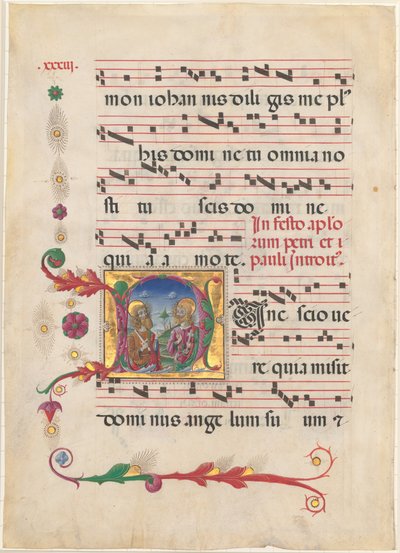 xxxiii
mon iohan nis dili gis me pl'
his domi ne tu omnia no
sti tu scis do mi ne
In festo aplo
rum petri et
qui a a mo te.
pauli Introit'.
Nunc scio ve
re quia misit
domi nus ange lum su um